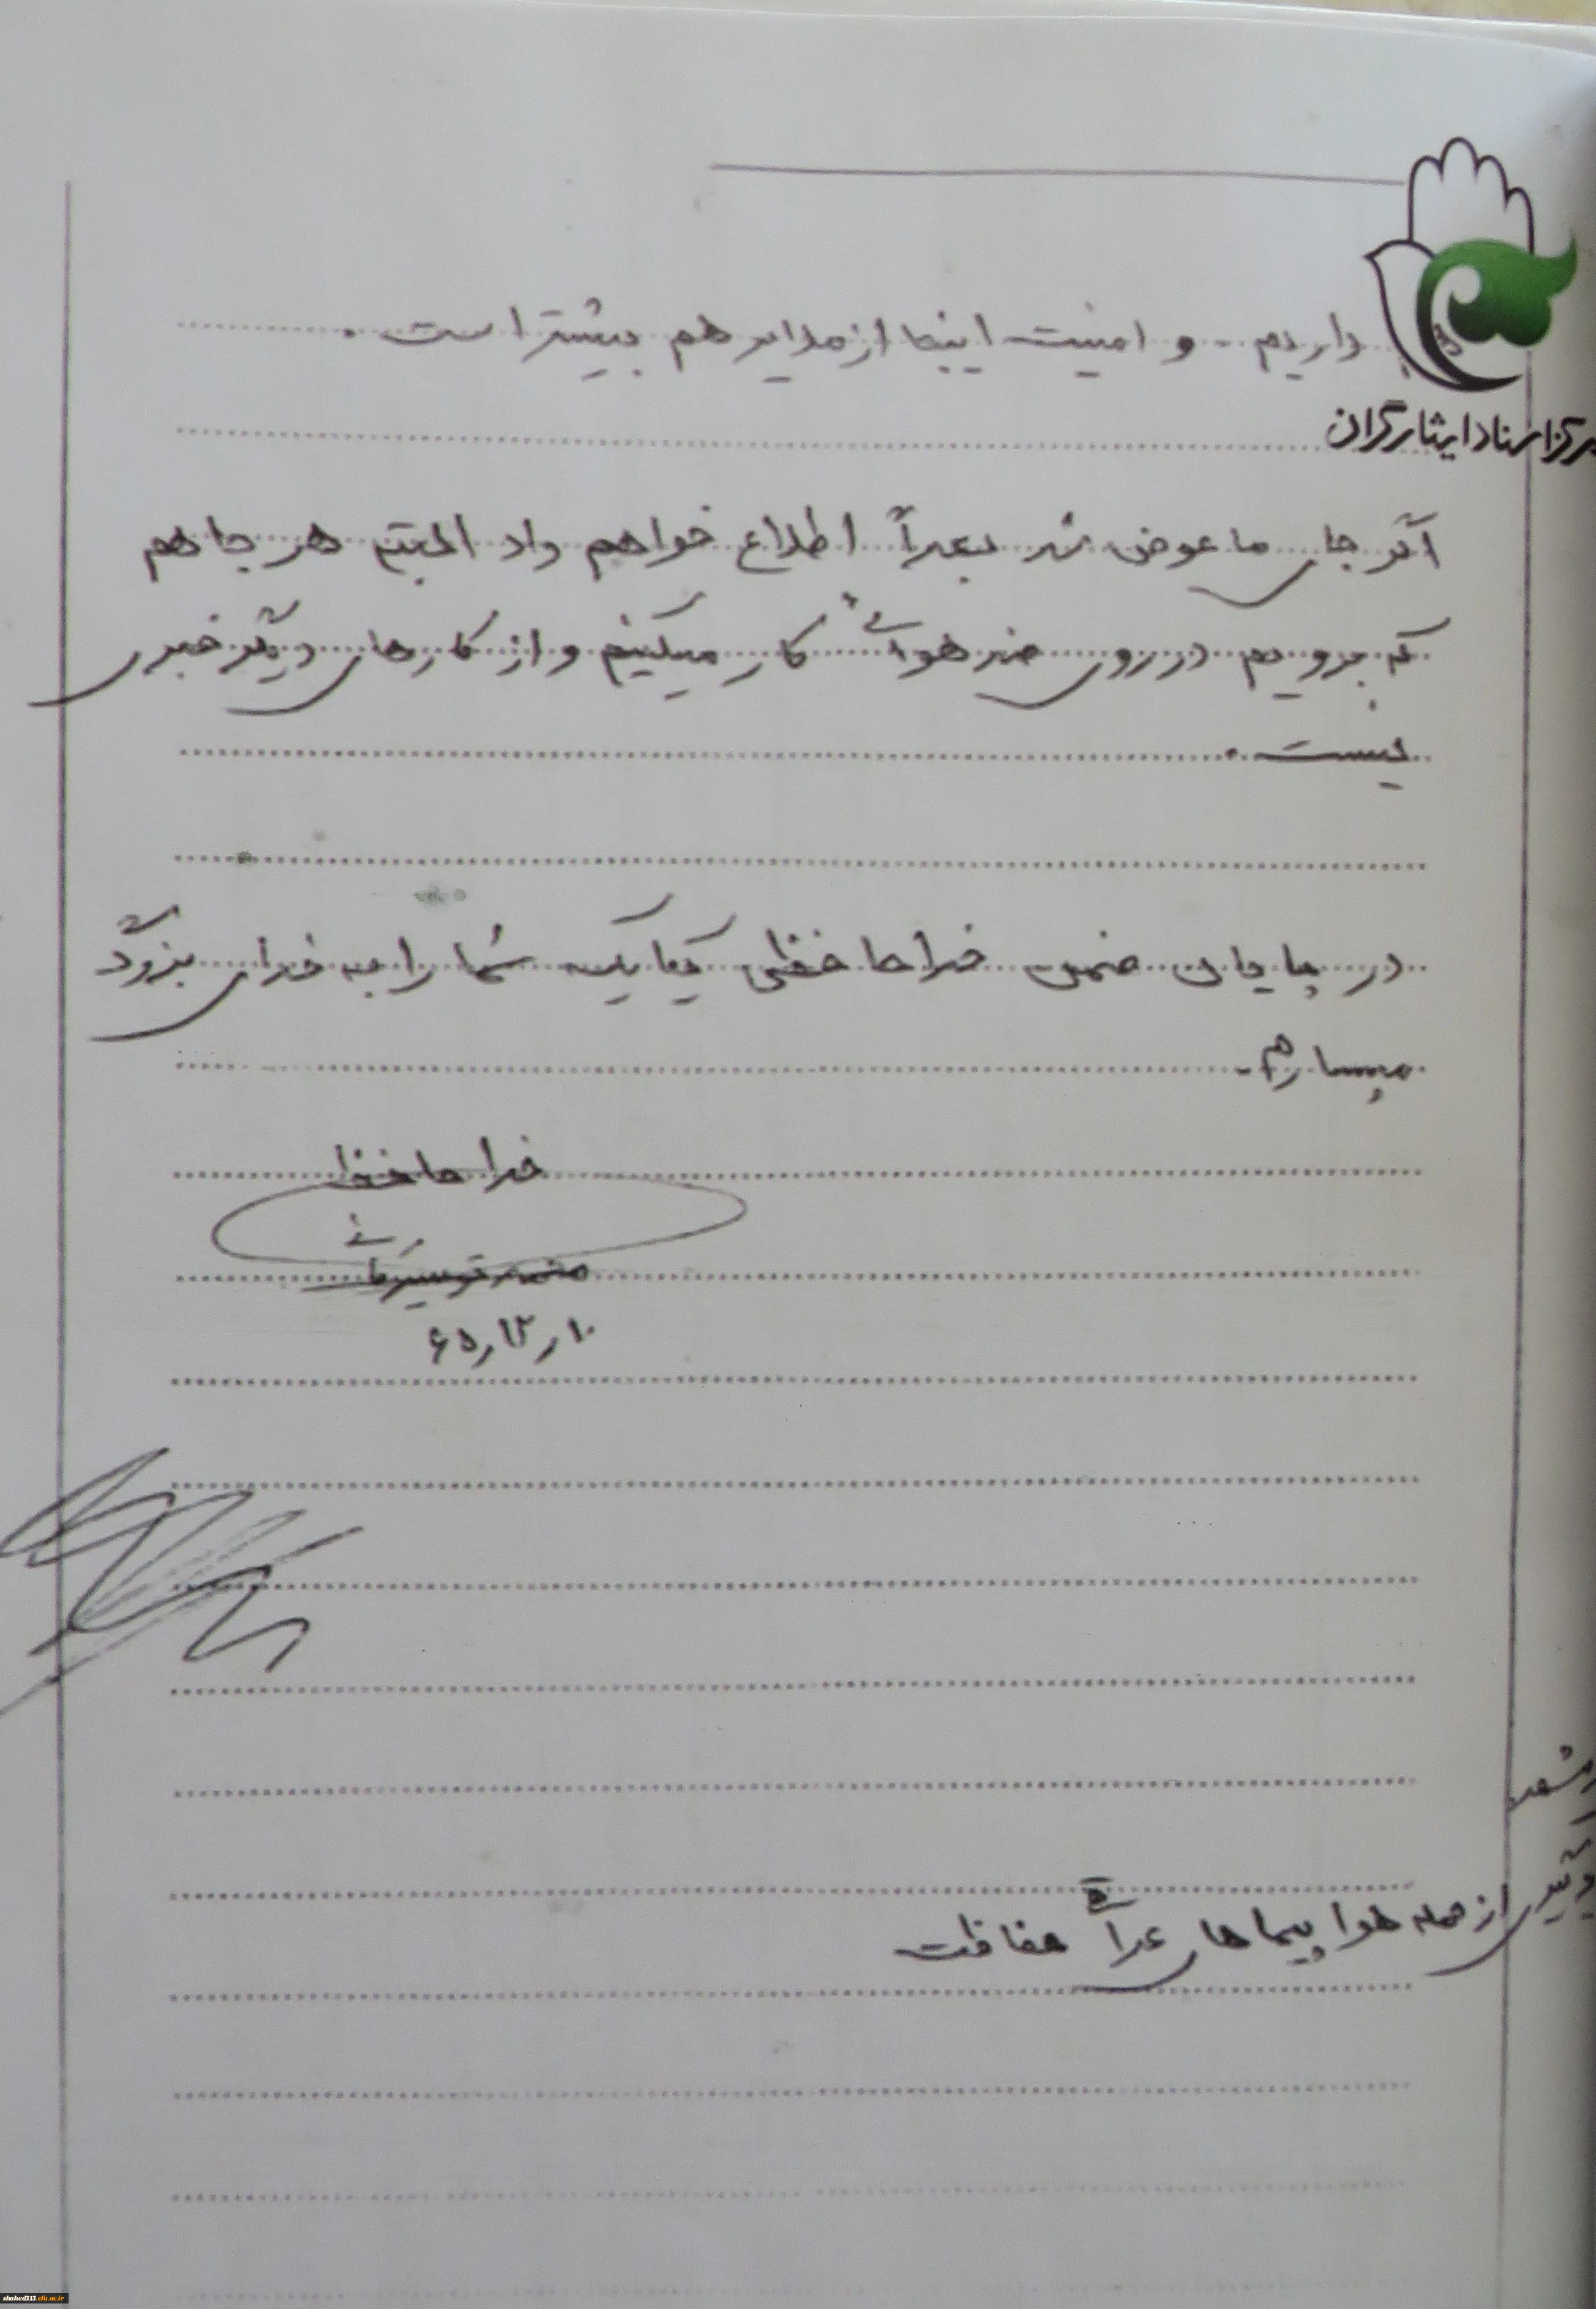 داریم . و امنیت اینجا از ملایر هم بیشتر است .
مرکز اسناد ایثارگران
اگر جای ما عوض شد بعداً اطلاع خواهم داد البته هر جا هم
که برویم در روی ضد هوائی کار میکنیم و از کارهای دیگر خبری
نیست .
در پایان ضمن خداحافظی یکایک شما را به خدای بزرگ
میسپارم .
خداحافظ
۱۰ر۱۲ر۶۵
از حمله هواپیماهای عراق حفاظت
shahed313.cfu.ac.ir